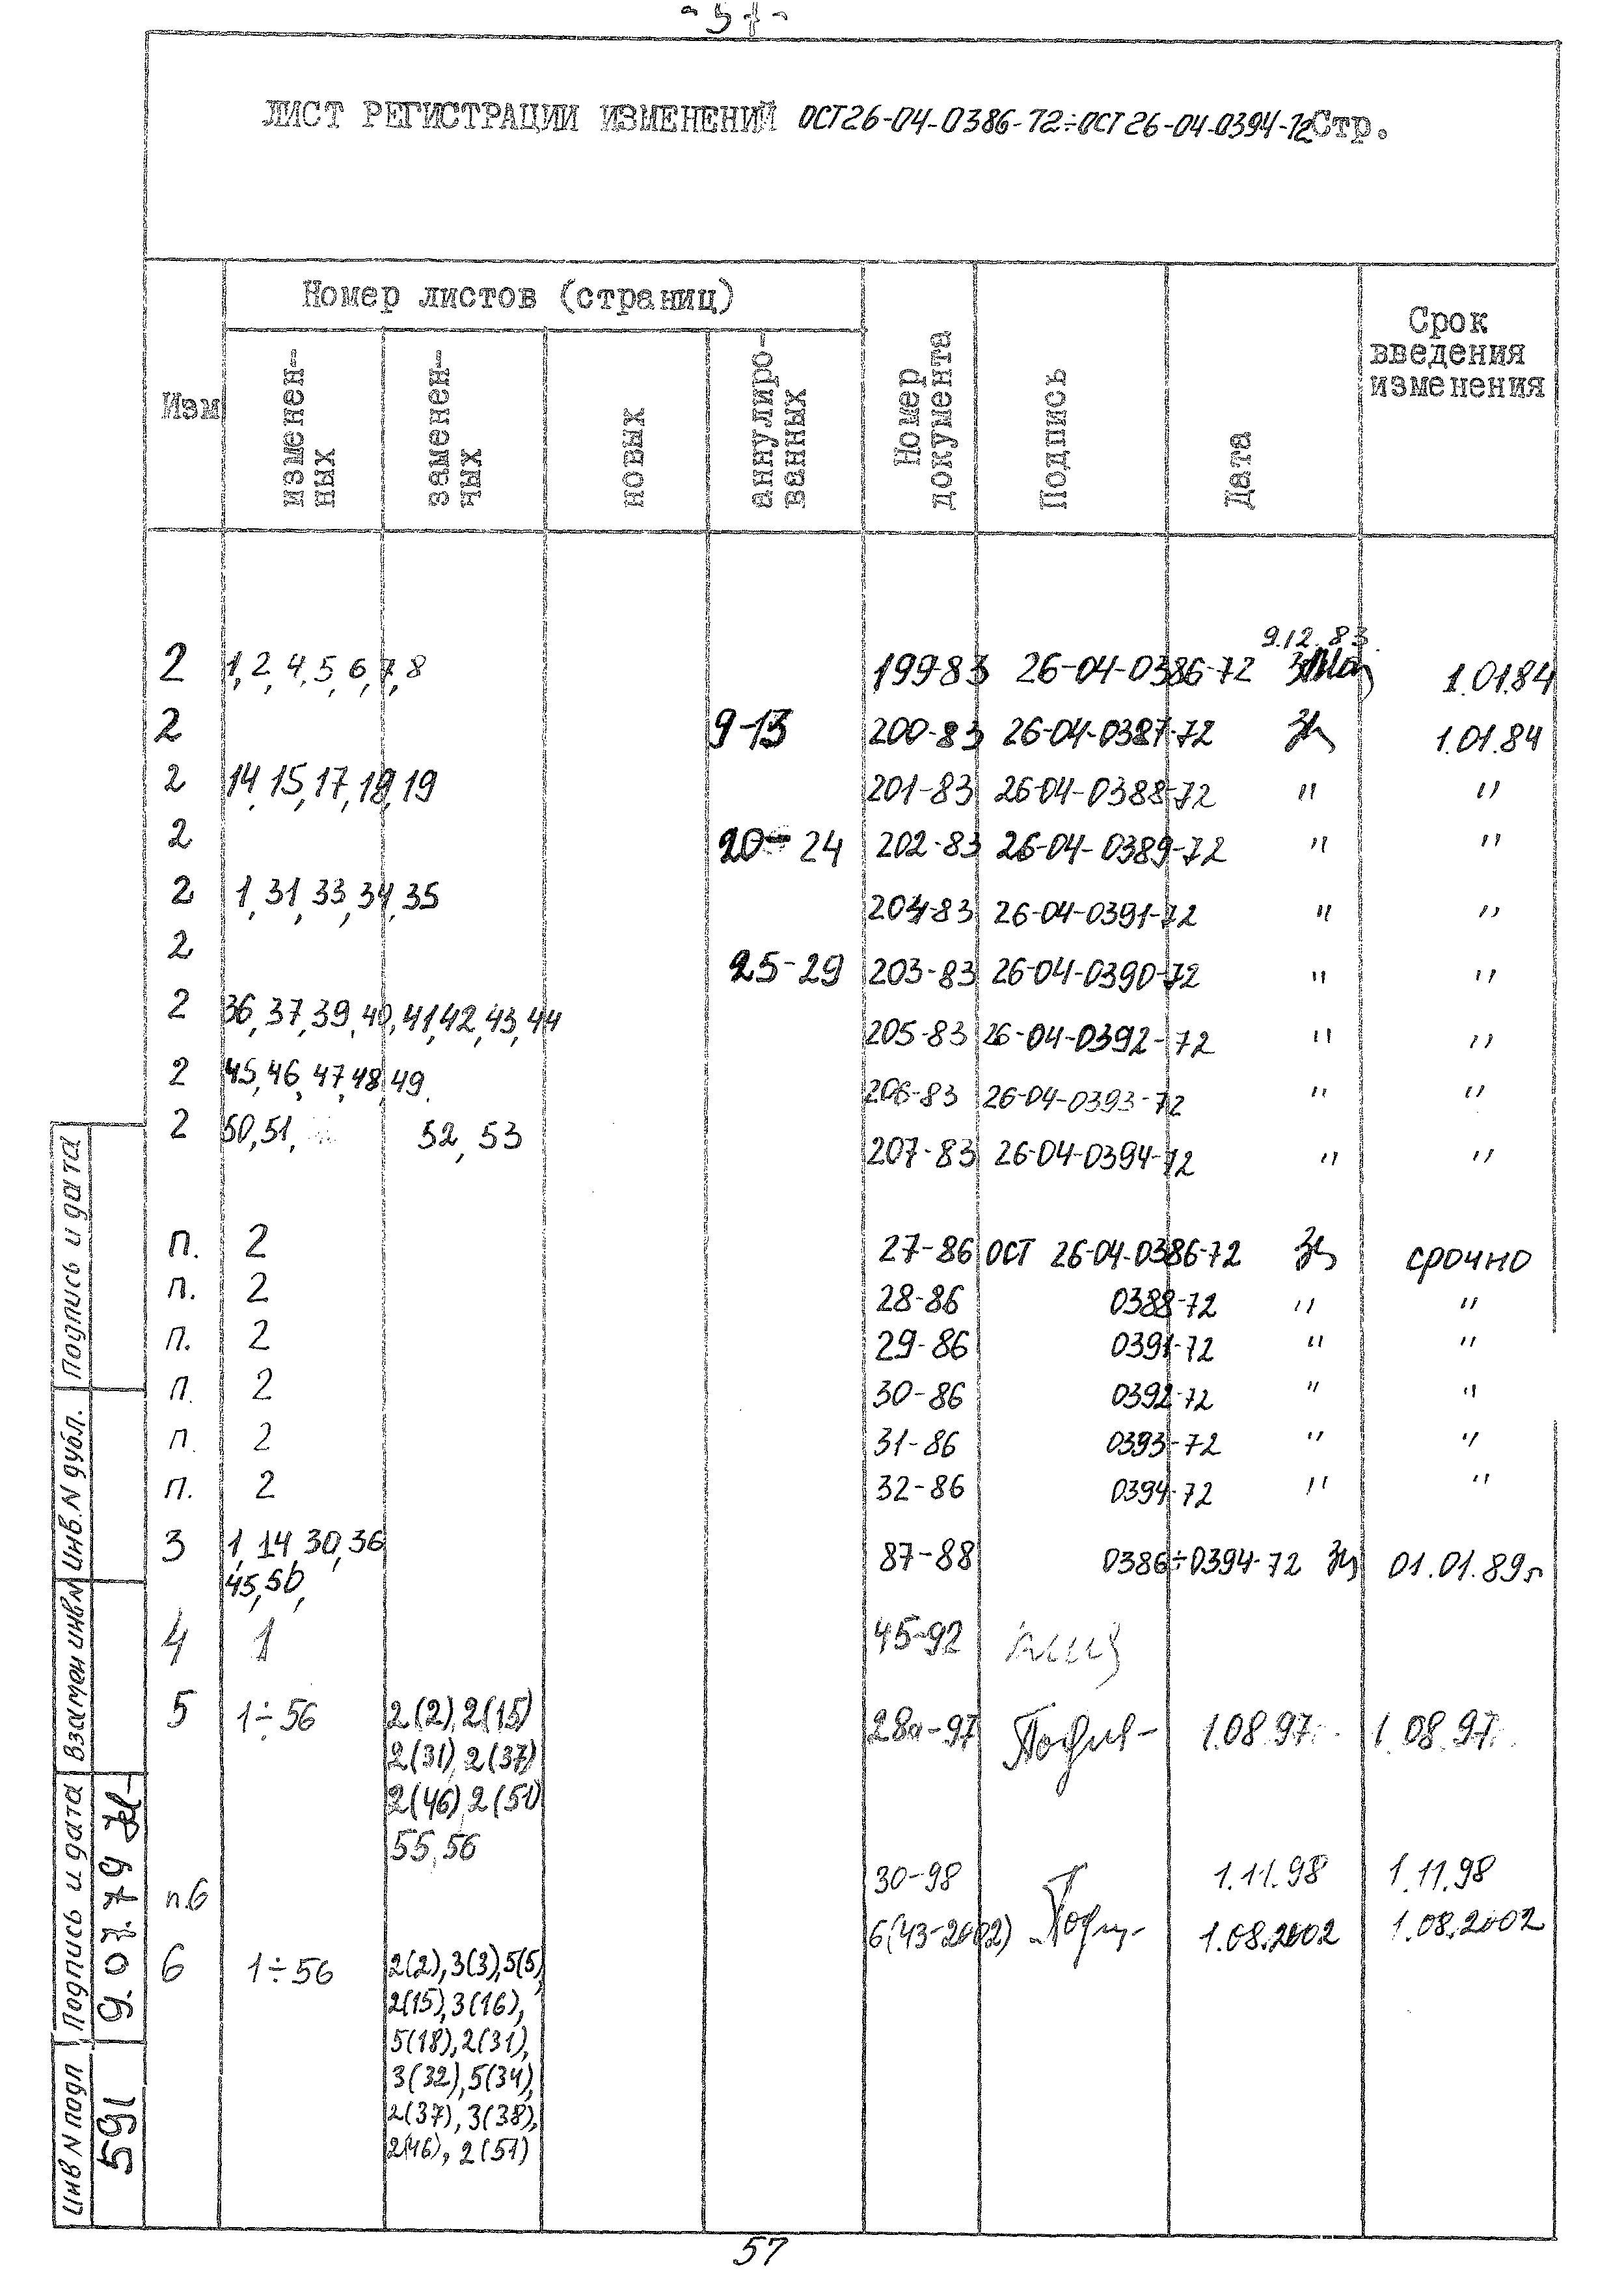 - 57 -
ЛИСТ РЕГИСТРАЦИИ ИЗМЕНЕНИЙ ОСТ26-04-0386-72÷ОСТ26-04-0394-72 Стр.
Изм
Номер листов (страниц)
изменен-
ных
заменен-
ных
новых
аннулиро-
ванных
Номер
документа
Подпись
Дата
Срок
введения
изменения
9.12.83.
2 1, 2, 4, 5, 6, 7, 8 199-83 26-04-0386-72 1.01.84
2 9-13 200-83 26-04-0387-72 1.01.84
2 14, 15, 17, 18, 19 201-83 26-04-0388-72 " "
2 20-24 202-83 26-04-0389-72 " "
2 1, 31, 33, 34, 35 204-83 26-04-0391-72 " "
2 25-29 203-83 26-04-0390-72 " "
2 36, 37, 39, 40, 41, 42, 43, 44 205-83 26-04-0392-72 " "
2 45, 46, 47, 48, 49. 206-83 26-04-0393-72 " "
2 50, 51, 52, 53 207-83 26-04-0394-72 " "
п. 2 27-86 ОСТ 26-04-0386-72 срочно
п. 2 28-86 0388-72 " "
п. 2 29-86 0391-72 " "
п. 2 30-86 0392-72 " "
п. 2 31-86 0393-72 " "
п. 2 32-86 0394-72 " "
3 1, 14 30, 36 87-88 0386÷0394-72 01.01.89г
45, 50,
4 1 45-92
5 1÷56 2(2), 2(15) 28а-97 1.08.97. 1.08.97.
2(31), 2(37)
2(46), 2(51)
55, 56
п.6 30-98 1.11.98 1.11.98
6(43-2002) 1.08.2002 1.08.2002
6 1÷56 2(2), 3(3), 5(5),
2(15), 3(16),
5(18), 2(31),
3(32), 5(34),
2(37), 3(38),
2(46), 2(51)
Подпись и дата
Инв. N дубл.
Взамен инв N
Подпись и дата
9.07.79
Инв N подл
591
57